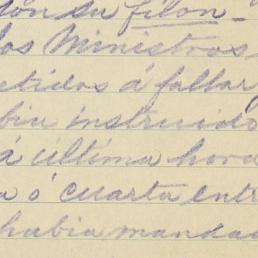 ción su filon-
los Ministros
etidos á fallar
bia instruido
á última hora
a ó cuarta entr
habia mandad